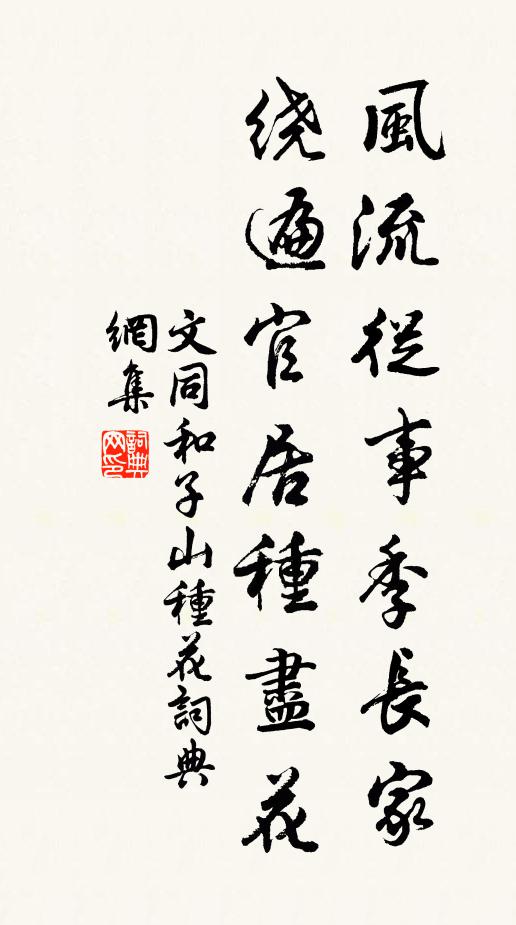 風流從事季長家
繞遍官居種盡花
文同和子山種花詞典
網集
詞典網印